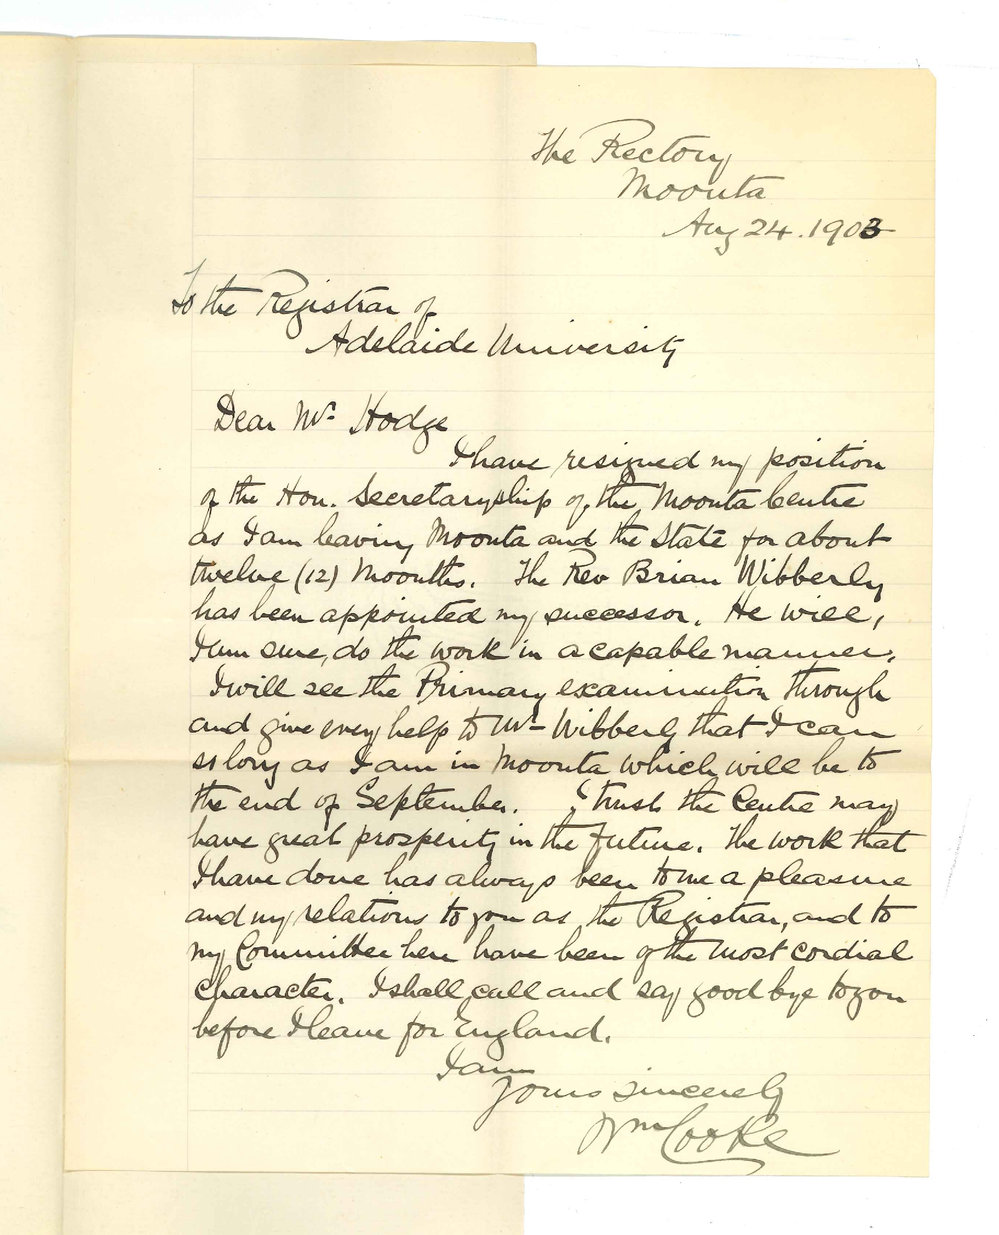 The Rectory
Moonta
Aug 24. 1903
To the Registrar of
Adelaide University
Dear Mr Hodge
I have resigned my position
of the Hon. Secretaryship of the Moonta Centre
as I am leaving Moonta and the State for about
twelve (12) Moonths. The Rev Brian Wibberly
has been appointed my successor. He will,
I am sure, do the work in a capable manner.
I will see the Primary examination through
and give every help to Mr Wibberly that I can
so long as I am in Moonta which will be to
the end of September. I trust the Centre may
have great prosperity in the future. The work that
I have done has always been to me a pleasure
and my relations to you as the Registrar, and to
my Committee here have been of the most cordial
character. I shall call and say good bye to you
before I leave for England.
I am
Yours sincerely
Wm Cooke